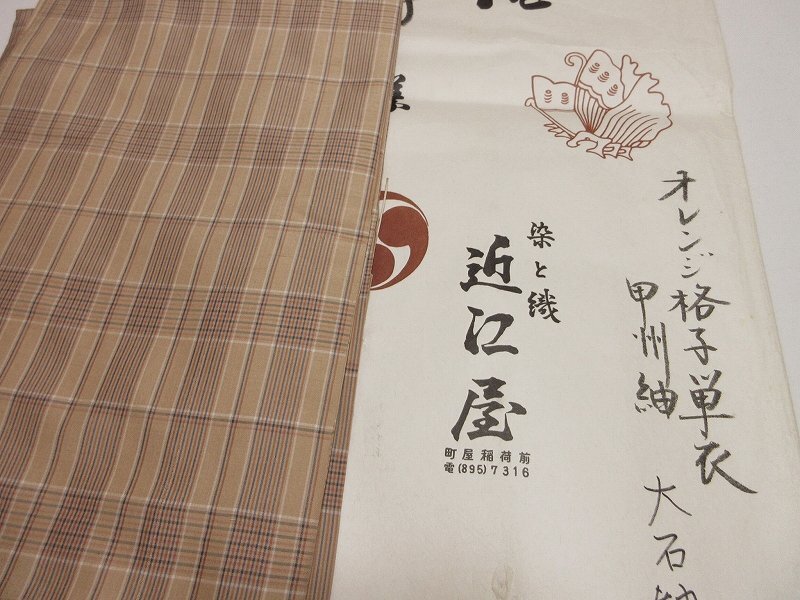 オレンジ格子単衣
甲州紬
大石
様
染と織
近江屋
町屋稲荷前
電(895)7316